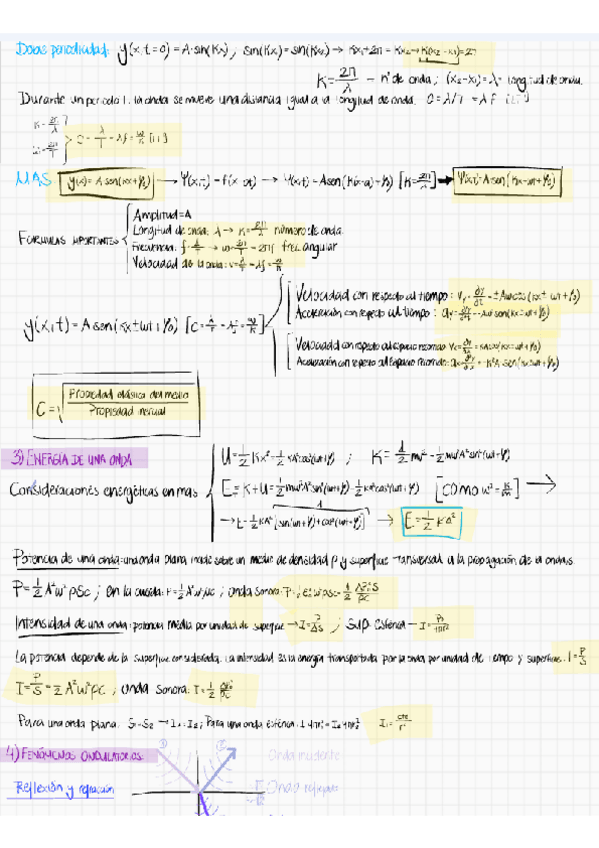 Doble periodicidad: y(x, t=0) = A·sin(Kx), sin(Kx₁) = sin(Kx₂) → Kx₁+2π = Kx₂ → K(x₂-x₁) = 2π
K = 2π/λ – nº de onda; (x₂-x₁) = λ = longitud de onda.
Durante un periodo T, la onda se mueve una distancia igual a la longitud de onda. c = λ/T = λF
K = 2π/λ
ω = 2π/T
c = λ/T = λf = ω/K
MAS
y(x) = A sen(Kx+φ₀) → Ψ(x,t) = f(x-ct) → Ψ(x,t) = A sen(K(x-ct)+φ₀) [K = 2π/λ] → Ψ(x,t) = A sen(Kx-ωt+φ₀)
FÓRMULAS IMPORTANTES
Amplitud = A
Longitud de onda: λ → K = 2π/λ número de onda.
Frecuencia: f = 1/T → ω = 2π/T = 2πf frec. angular
Velocidad de la onda: v = λ/T = λf = ω/K
y(x,t) = A sen(Kx±ωt+φ₀) [c = λ/T = λf = ω/K]
Velocidad con respecto al tiempo: v_y = ∂y/∂t = ±Aω cos(Kx±ωt+φ₀)
Aceleración con respecto al tiempo: a_y = = -Aω² sen(Kx±ωt+φ₀)
Velocidad con respecto al espacio recorrido: = KA cos(Kx±ωt+φ₀)
Aceleración con respecto al espacio recorrido: = -K²A sen(Kx±ωt+φ₀)
c = √(Propiedad elástica del medio / Propiedad inercial)
3) ENERGÍA DE UNA ONDA
Consideraciones energéticas en mas
U = 1/2 Kx² = 1/2 KA² cos²(ωt+φ₀) ; K = 1/2 mv² = 1/2 mω²A² sen²(ωt+φ₀)
E = K+U = 1/2 mω²A² sen²(ωt+φ₀) + 1/2 KA² cos²(ωt+φ₀) [como ω² = K/m] →
→ E = 1/2 KA² [sen²(ωt+φ₀) + cos²(ωt+φ₀)] → E = 1/2 KA²
Potencia de una onda: una onda plana incide sobre un medio de densidad ρ y superficie transversal a la propagación de la ondas.
P = 1/2 A²ω²ρSc ; en la cuerda: P = 1/2 A²ω²μc ; onda sonora: P =
Intensidad de una onda: potencia media por unidad de superficie → I = P/ΔS ; sup. esférica → I = P/4πr²
La potencia depende de la superficie considerada. La intensidad es la energía transportada por la onda por unidad de tiempo y superficie. I = P/S
I = P/S = 1/2 A²ω²ρc ; onda sonora: I = 1/2
Para una onda plana: S₁=S₂ → I₁=I₂ ; Para una onda esférica: I₁4πr₁² = I₂4πr₂² I = cte/r²
4) FENÓMENOS ONDULATORIOS
Onda incidente
Reflexión y refracción
Onda reflejada